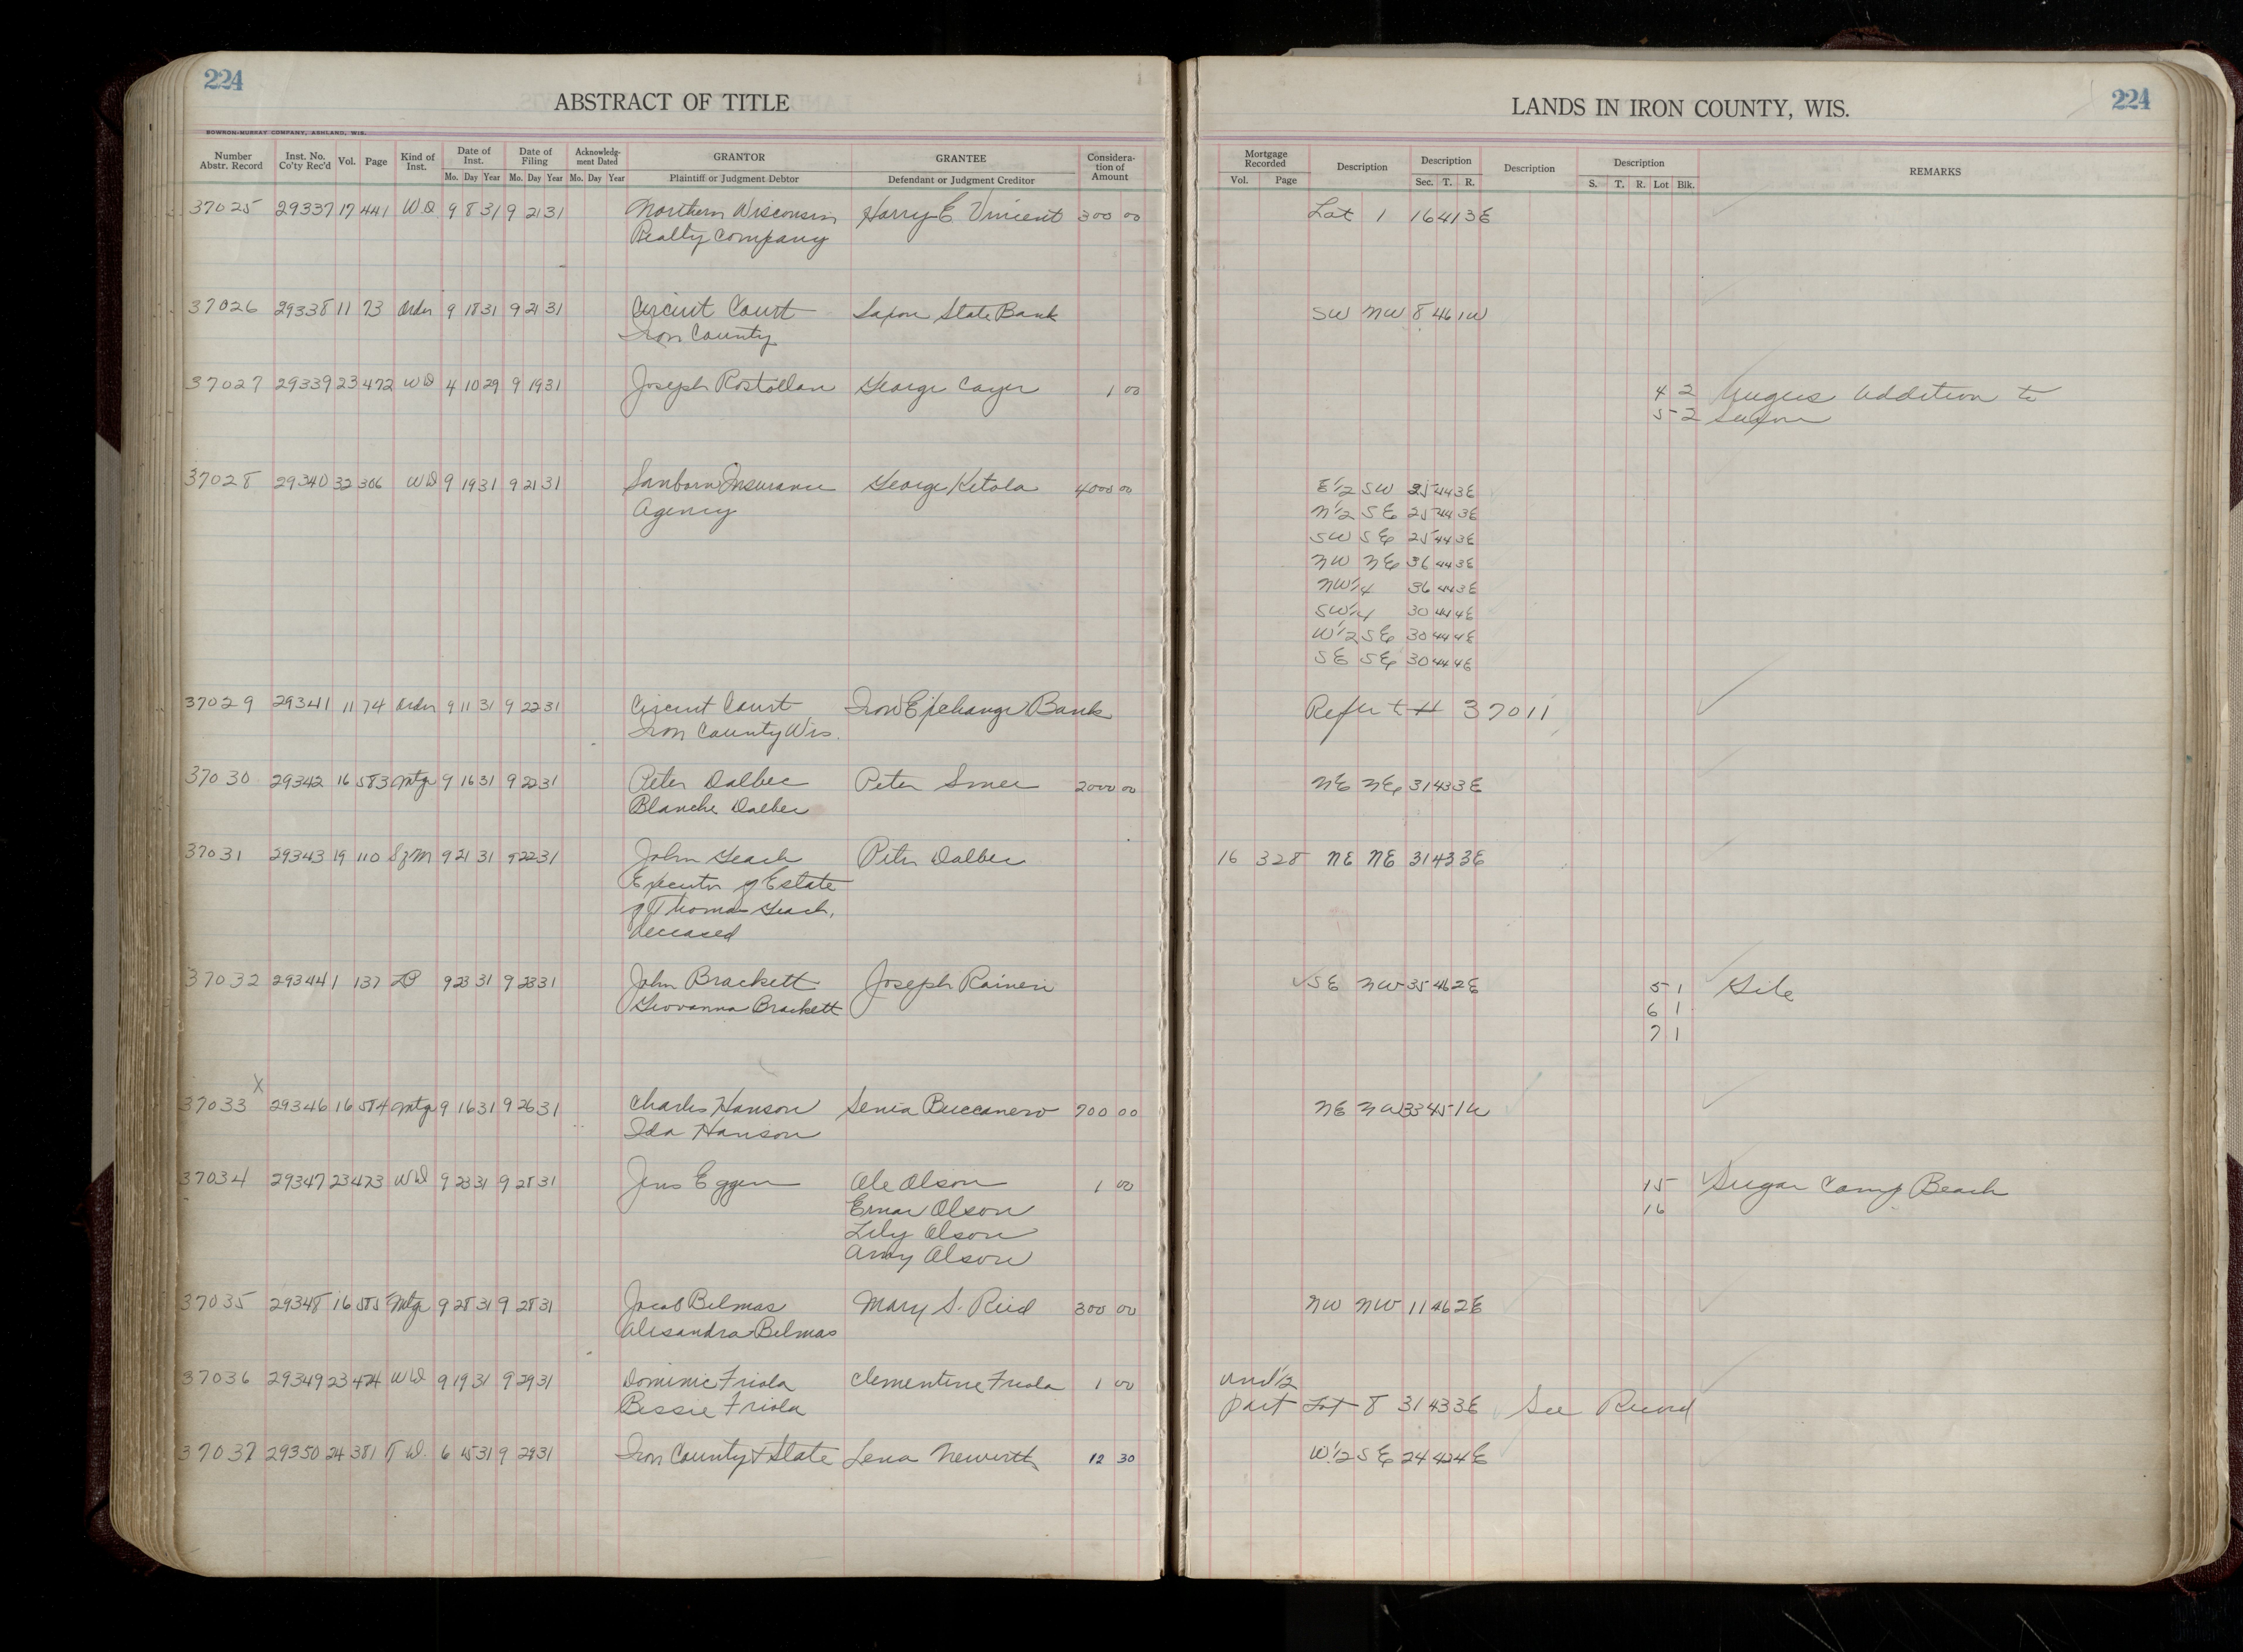 224
ABSTRACT OF TITLE
LANDS IN IRON COUNTY, WIS.
224
BOWRON-MURRAY COMPANY, ASHLAND, WIS.
Number Abstr. Record | Inst. No. Co'ty Rec'd | Vol. | Page | Kind of Inst. | Date of Inst. Mo. Day Year | Date of Filing Mo. Day Year | Acknowledg- ment Dated Mo. Day Year | GRANTOR Plaintiff or Judgment Debtor | GRANTEE Defendant or Judgment Creditor | Considera- tion of Amount | Mortgage Recorded Vol. Page | Description | Description Sec. T. R. | Description | Description S. T. R. Lot Blk. | REMARKS
37025 29337 17 441 WD 9 8 31 9 21 31 Northern Wisconsin Harry E Vincent 300 00 Lot 1 16 41 3E
Realty Company
37026 29338 11 73 Order 9 18 31 9 21 31 Circuit Court Saxon State Bank SW NW 8 46 1W
Iron County
37027 29339 23 472 WD 4 10 29 9 19 31 Joseph Rostollan George Cayer 1 00 4 2 Angus Addition to
5 2 Saxon
37028 29340 32 306 WD 9 19 31 9 21 31 Sanborn Insurance George Ketola 4000 00 E1/2 SW 25 44 3E
Agency N1/2 SE 25 44 3E
SW SE 25 44 3E
NW NE 36 44 3E
NW1/4 36 44 3E
SW1/4 30 44 4E
W1/2 SE 30 44 4E
SE SE 30 44 4E
37029 29341 11 74 Order 9 11 31 9 22 31 Circuit Court Iron Exchange Bank Refer to # 37011
Iron County Wis.
37030 29342 16 583 Mtg 9 16 31 9 22 31 Peter Dalbec Peter Smee 2000 00 NE NE 31 43 3E
Blanche Dalbec
37031 29343 19 110 SfM 9 21 31 9 22 31 John Geach Peter Dalbec 16 328 NE NE 31 43 3E
Executor of Estate
of Thomas Geach,
deceased
37032 29344 1 137 LP 9 23 31 9 23 31 John Brackett Joseph Raineri SE NW 35 46 2E 5 1 Gile
Giovanna Brackett 6 1
7 1
X
37033 29346 16 584 Mtg 9 16 31 9 26 31 Charles Hanson Senia Buccanero 700 00 NE NW 33 45 1W
Ida Hanson
37034 29347 23 473 WD 9 23 31 9 28 31 Jens Eggen Ole Olson 1 00 15 Sugar Camp Beach
Ernar Olson 16
Lily Olson
Amy Olson
37035 29348 16 585 Mtg 9 28 31 9 28 31 Jacob Belmas Mary S. Reid 300 00 NW NW 11 46 2E
Alesandra Belmas
37036 29349 23 474 WD 9 19 31 9 29 31 Dominic Friola Clementine Friola 1 00 und 1/2
Bessie Friola part Lot 8 31 43 3E See Record
37037 29350 24 381 T D. 6 15 31 9 29 31 Iron County & State Lena Newirth 12 30 W1/2 SE 24 42 4E